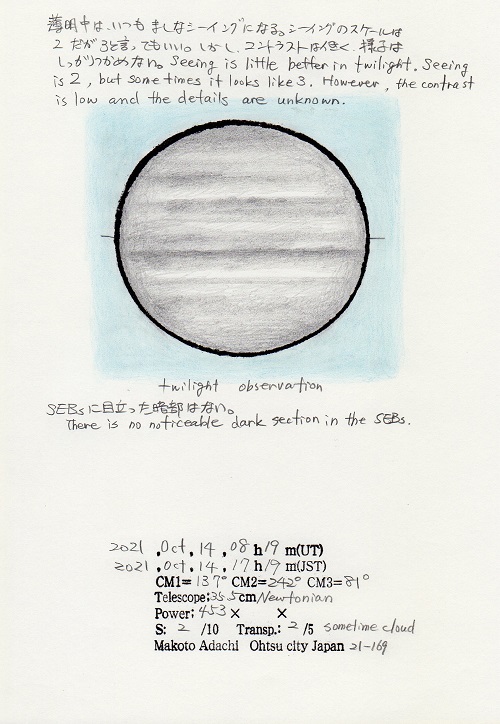 薄明中は、いつもましなシーイングになる。シーイングのスケールは
2だが3と言ってもいい。しかし、コントラストは低く、様子は
しっかりつかめない。Seeing is little better in twilight. Seeing
is 2, but sometimes it looks like 3. However, the contrast
is low and the details are unknown.
twilight observation
SEBsに目立った暗部はない。
There is no noticeable dark section in the SEBs.
2021 .Oct. 14. 08 h 19 m(UT)
2021 .Oct. 14. 17 h 19 m(JST)
CM1= 137° CM2=242° CM3=81°
Telescope:35.5cm/Newtonian
Power: 453 × ×
S: 2 /10 Transp.: 2 /5 sometime cloud
Makoto Adachi Ohtsu city Japan 21-169